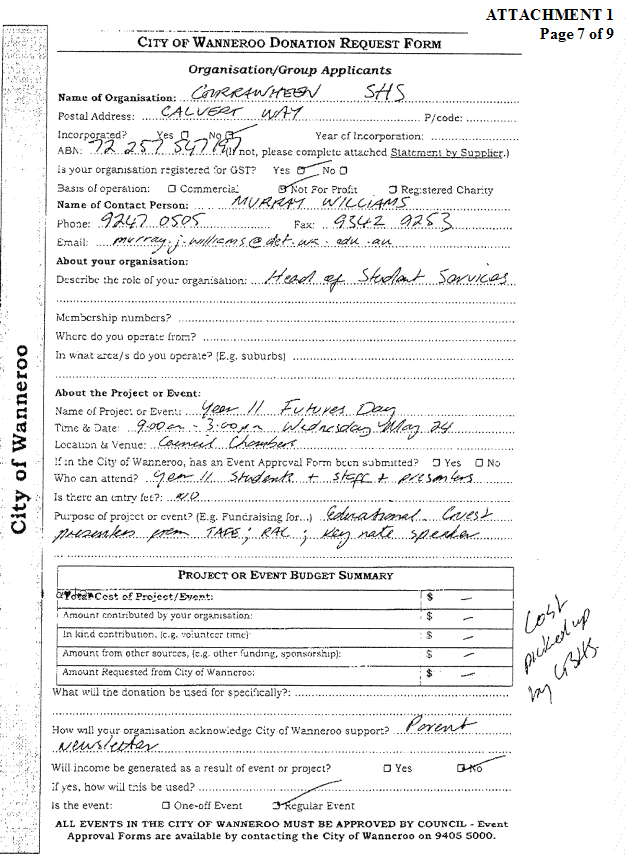 ATTACHMENT 1
Page 7 of 9
CITY OF WANNEROO DONATION REQUEST FORM
Organisation/Group Applicants
Name of Organisation: GIRRAWHEEN SHS
Postal Address: CALVERT WAY P/code:
Incorporated? Yes No Year of Incorporation:
ABN: 72 257 547 197 (If not, please complete attached Statement by Supplier.)
Is your organisation registered for GST? Yes No
Basis of operation: Commercial Not For Profit Registered Charity
Name of Contact Person: MURRAY WILLIAMS
Phone: 9247 0505 Fax: 9342 9253
Email: murray.j.williams@det.wa.edu.au
About your organisation:
Describe the role of your organisation: Head of Student Services
Membership numbers?
Where do you operate from?
In what area/s do you operate? (E.g. suburbs)
About the Project or Event:
Name of Project or Event: Year 11 Futures Day
Time & Date: 9:00am - 3:00pm Wednesday May 24
Location & Venue: Council Chambers
If in the City of Wanneroo, has an Event Approval Form been submitted? Yes No
Who can attend? Year 11 Students + staff + presenters
Is there an entry fee?: NO
Purpose of project or event? (E.g. Fundraising for...) Educational Guest
presenters from TAFE; RAC; Key note speaker
PROJECT OR EVENT BUDGET SUMMARY
Total Cost of Project/Event: $ –
Amount contributed by your organisation: $ –
In kind contribution, (e.g. volunteer time): $ –
Amount from other sources, (e.g. other funding, sponsorship): $ –
Amount Requested from City of Wanneroo: $ –
Cost
picked up
by
What will the donation be used for specifically?:
How will your organisation acknowledge City of Wanneroo support? Parent
Newsletter
Will income be generated as a result of event or project? Yes No
If yes, how will this be used?
Is the event: One-off Event Regular Event
ALL EVENTS IN THE CITY OF WANNEROO MUST BE APPROVED BY COUNCIL - Event
Approval Forms are available by contacting the City of Wanneroo on 9405 5000.
City of Wanneroo